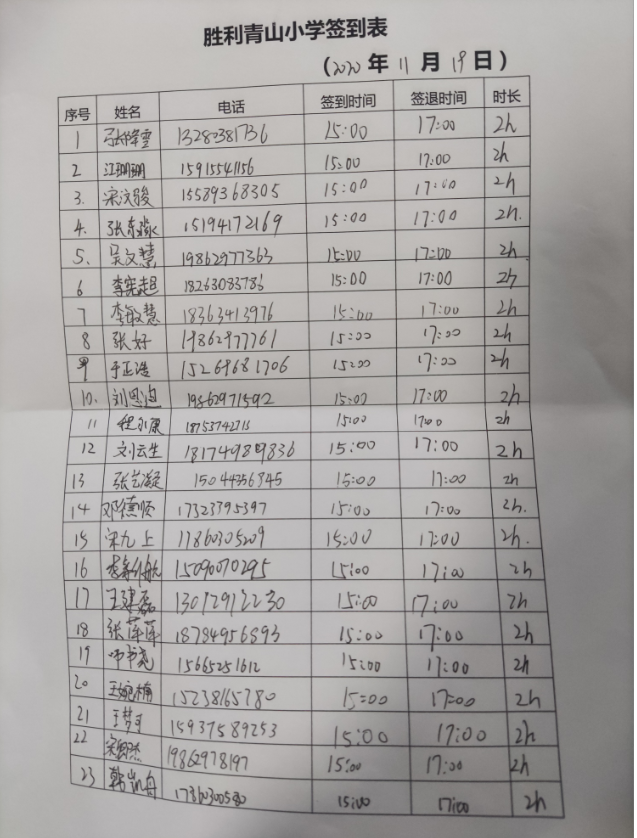 胜利青山小学签到表
(2020 年 11 月 19 日)
序号 姓名 电话 签到时间 签退时间 时长
1 张峰雪 15:00 17:00 2h
2 江珊珊 15915541156 15:00 17:00 2h
3. 宋汶骏 15589368305 15:00 17:00 2h
4. 15194172169 15:00 17:00 2h.
5. 吴文慧 19862977363 15:00 17:00 2h
6 李宪超 18263083786 15:00 17:00 2h
7 李敏慧 18363413976 15:00 17:00 2h
8 张好 19862977761 15:00 17:00 2h
9 于正浩 15269681706 15:00 17:00 2h
10. 刘思迪 19862971592 15:00 17:00 2h
11 程永康 18753742713 15:00 17:00 2h
12 刘云生 15:00 17:00 2h
13 张艺凝 15044356845 15:00 17:00 2h
14 邓德贤 17323795397 15:00 17:00 2h.
15 宋九上 17860305209 15:00 17:00 2h.
16 15090070295 15:00 17:00 2h
17 王建磊 13072912230 15:00 17:00 2h
18 张萍萍 18784956893 15:00 17:00 2h
19 15665251612 15:00 17:00 2h
20 王婉楠 15238165780 15:00 17:00 2h
21 15937589253 15:00 17:00 2h
22 19862978197 15:00 17:00 2h
23 韩凯舟 17860300580 15:00 17:00 2h